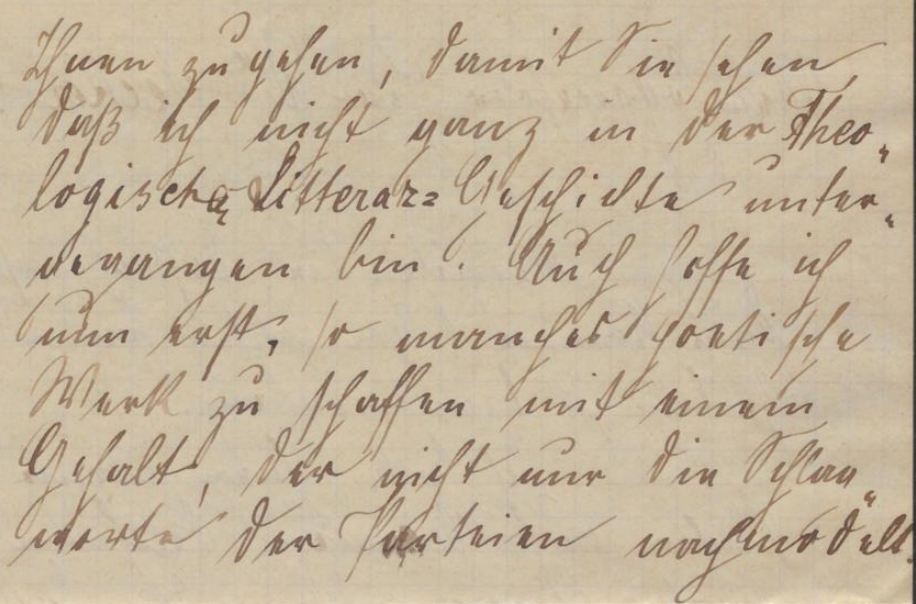 Ihnen zugehen, damit Sie sehen,
daß ich nicht ganz in der Theo„
logische Litterar= Geschichte unter„
gegangen bin. Auch hoffe ich
nun erst, so manches poetische
Werk zu schaffen mit einem
Gehalt, der nicht nur die Schlag„
worte der Parteien nachmodelt.